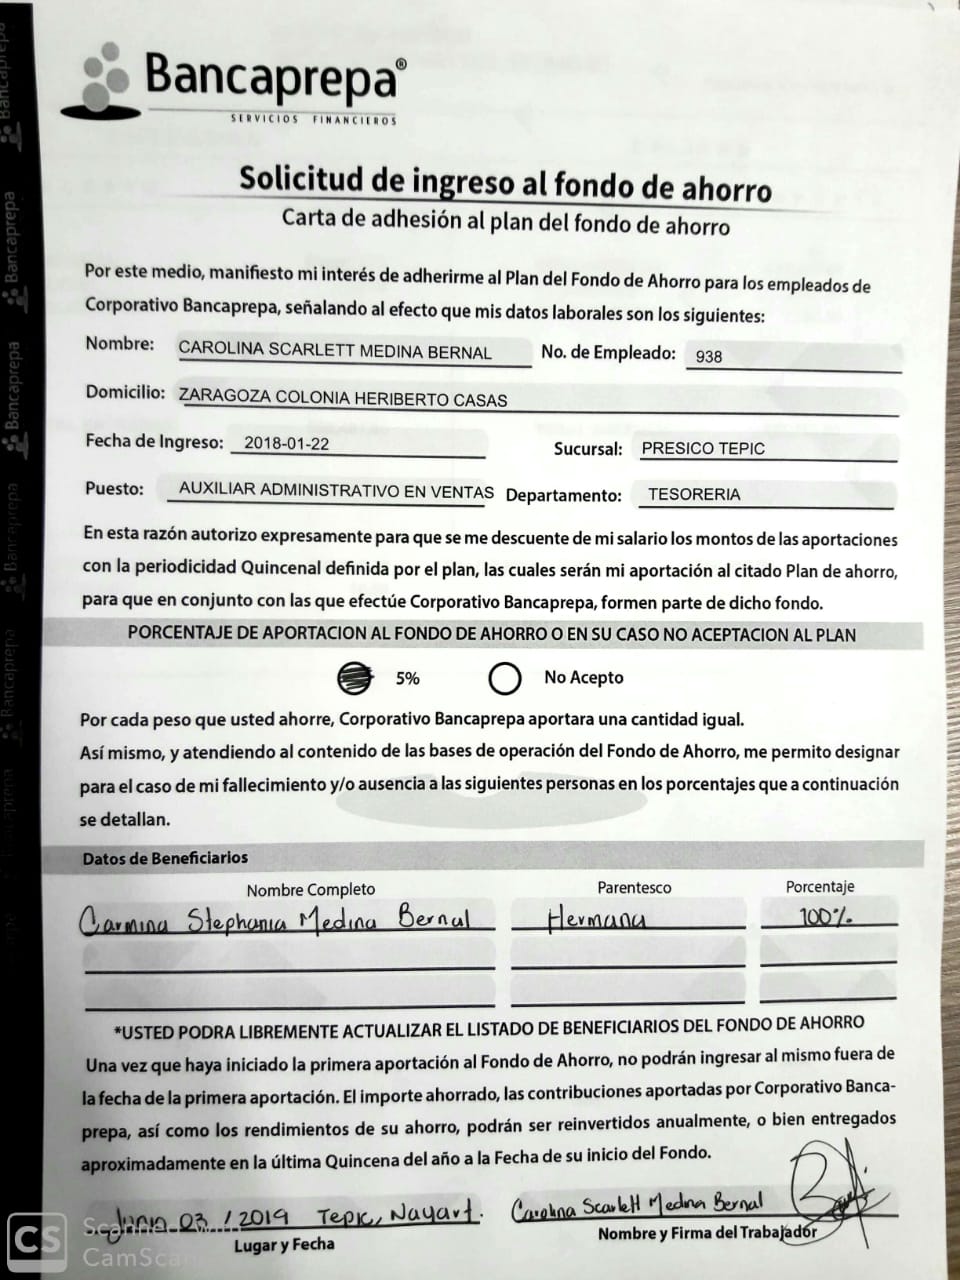 Bancaprepa®
SERVICIOS FINANCIEROS
Solicitud de ingreso al fondo de ahorro
Carta de adhesión al plan del fondo de ahorro
Por este medio, manifiesto mi interés de adherirme al Plan del Fondo de Ahorro para los empleados de
Corporativo Bancaprepa, señalando al efecto que mis datos laborales son los siguientes:
Nombre: CAROLINA SCARLETT MEDINA BERNAL No. de Empleado: 938
Domicilio: ZARAGOZA COLONIA HERIBERTO CASAS
Fecha de Ingreso: 2018-01-22 Sucursal: PRESICO TEPIC
Puesto: AUXILIAR ADMINISTRATIVO EN VENTAS Departamento: TESORERIA
En esta razón autorizo expresamente para que se me descuente de mi salario los montos de las aportaciones
con la periodicidad Quincenal definida por el plan, las cuales serán mi aportación al citado Plan de ahorro,
para que en conjunto con las que efectúe Corporativo Bancaprepa, formen parte de dicho fondo.
PORCENTAJE DE APORTACION AL FONDO DE AHORRO O EN SU CASO NO ACEPTACION AL PLAN
5% No Acepto
Por cada peso que usted ahorre, Corporativo Bancaprepa aportara una cantidad igual.
Así mismo, y atendiendo al contenido de las bases de operación del Fondo de Ahorro, me permito designar
para el caso de mi fallecimiento y/o ausencia a las siguientes personas en los porcentajes que a continuación
se detallan.
Datos de Beneficiarios
Nombre Completo Parentesco Porcentaje
Carmina Stephania Medina Bernal Hermana 100%
*USTED PODRA LIBREMENTE ACTUALIZAR EL LISTADO DE BENEFICIARIOS DEL FONDO DE AHORRO
Una vez que haya iniciado la primera aportación al Fondo de Ahorro, no podrán ingresar al mismo fuera de
la fecha de la primera aportación. El importe ahorrado, las contribuciones aportadas por Corporativo Banca-
prepa, así como los rendimientos de su ahorro, podrán ser reinvertidos anualmente, o bien entregados
aproximadamente en la última Quincena del año a la Fecha de su inicio del Fondo.
03 / 2019 Tepic, Nayarit. Carolina Scarlett Medina Bernal
Lugar y Fecha Nombre y Firma del Trabajador
CS Scanned with
CamScanner